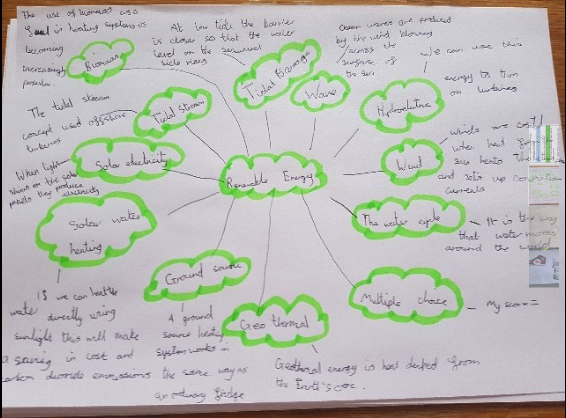 The use of biomass as a
fuel in heating systems is
becoming
increasingly
popular.
Biomass
At low tide the barrier
is closer so that the water
level on the
side rises
Tidal Barrage
Ocean waves are produced
by the wind blowing
across the
surface of
the sea
Wave
We can use this
energy to turn
on turbines
Hydroelectric
The tidal stream
concept used offshore
turbines
Tidal Stream
When light
shines on the solar
panels they produce
electricity
Solar electricity
Renewable Energy
Wind
winds are
when heat from
sun heats the
and sets up convection
currents
Solar water
heating
If we can heat the
water directly using
sunlight this will make
a saving in cost and
carbon dioxide emmssions
Ground source
A ground
source heating
system works in
the same way as
an ordinary fridge
Geothermal
Geothermal energy is heat derived from
the Earth's core.
The water cycle
It is the way
that water moves
around the world
Multiple choice
My score =